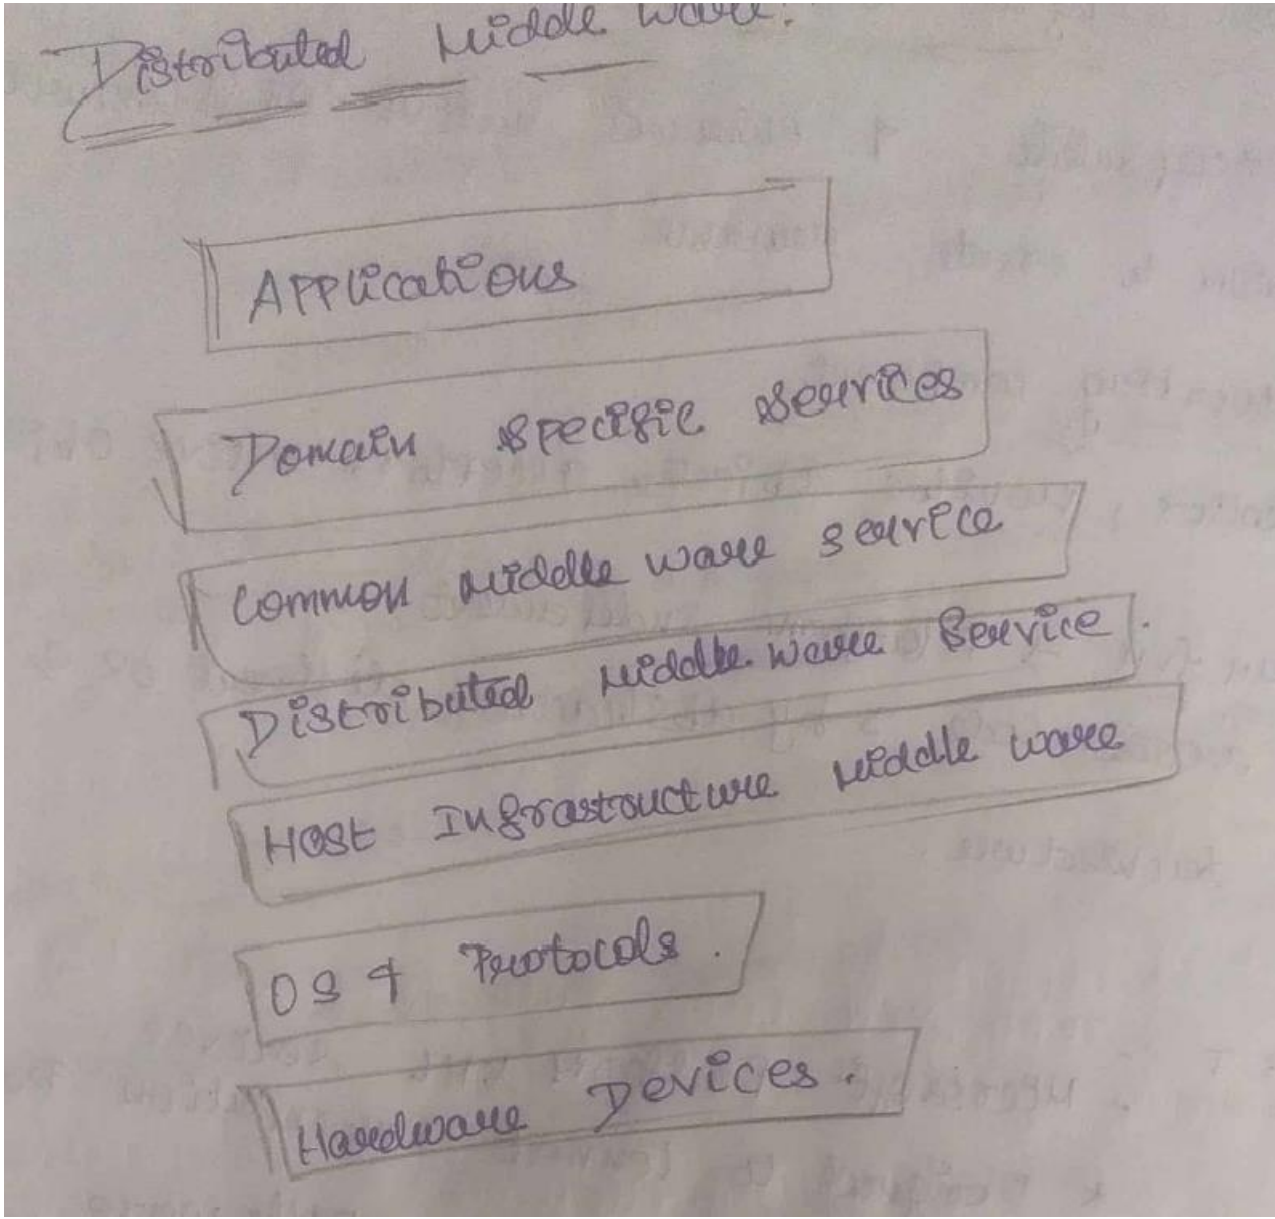 Distributed Middle Ware.
Applications
Domain specific services
Common Middle ware service
Distributed Middle ware Service.
Host Infrastructure Middle ware
OS & Protocols.
Hardware Devices.